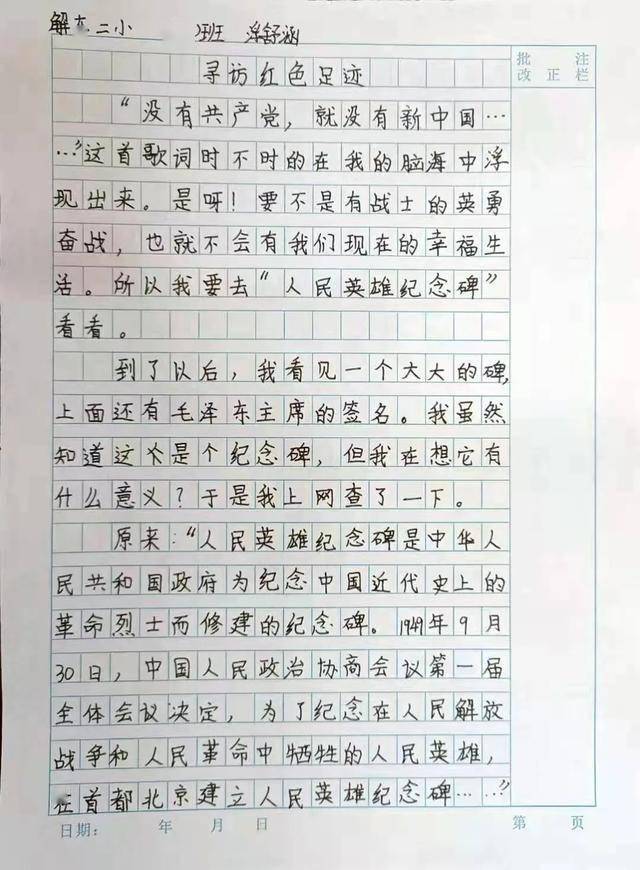 解大二小 班 浮舒涵
批 注
改正栏
寻访红色足迹
“没有共产党，就没有新中国…
…”这首歌词时不时的在我的脑海中浮
现出来。是呀！要不是有战士的英勇
奋战，也就不会有我们现在的幸福生
活。所以我要去“人民英雄纪念碑”
看看。
到了以后，我看见一个大大的碑，
上面还有毛泽东主席的签名。我虽然
知道这是个纪念碑，但我在想它有
什么意义？于是我上网查了一下。
原来：“人民英雄纪念碑是中华人
民共和国政府为纪念中国近代史上的
革命烈士而修建的纪念碑。1949年9月
30日，中国人民政治协商会议第一届
全体会议决定，为了纪念在人民解放
战争和人民革命中牺牲的人民英雄，
在首都北京建立人民英雄纪念碑……”
日期： 年 月 日 第 页